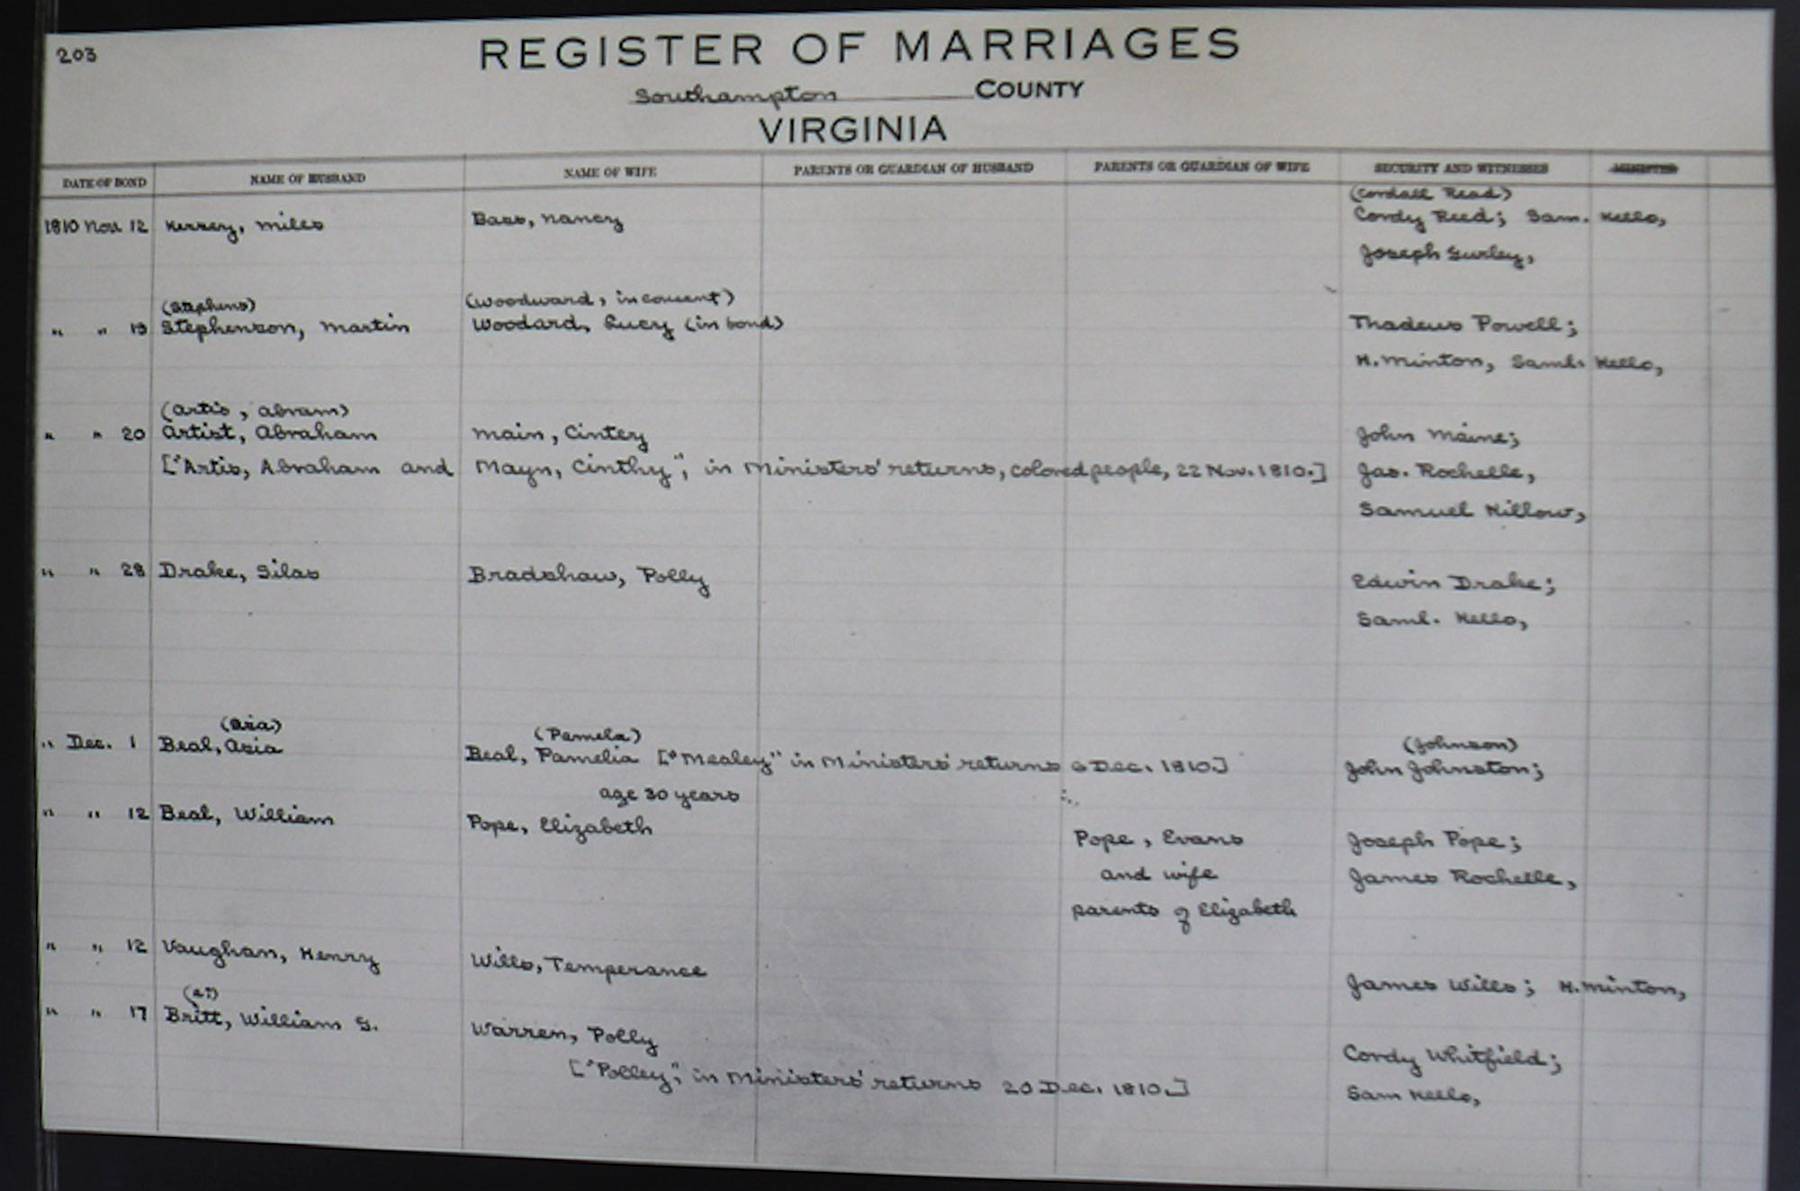 203
REGISTER OF MARRIAGES
Southampton COUNTY
VIRGINIA
DATE OF BOND NAME OF HUSBAND NAME OF WIFE PARENTS OR GUARDIAN OF HUSBAND PARENTS OR GUARDIAN OF WIFE SECURITY AND WITNESSES MINISTER
(Cordall Read)
1810 Nov. 12 Kersey, Miles Bass, Nancy Cordy Reed; Sam. Kello,
Joseph Gurley,
(Stephens) (Woodward, in consent)
" " 19 Stephenson, Martin Woodard, Lucy (in bond) Thadeus Powell;
H. Minton, Saml. Kello,
(Artis, Abram)
" " 20 Artist, Abraham Main, Cintey John Maine;
["Artis, Abraham and Mayn, Cinthy", in Ministers' returns, colored people, 22 Nov. 1810.] Jas. Rochelle,
Samuel Killow,
" " 28 Drake, Silas Bradshaw, Polly Edwin Drake;
Saml. Kello,
(Pamela) (Johnson)
" Dec. 1 Beal, Asia Beal, Pamelia ["Mealey" in Ministers' returns 6 Dec. 1810.] John Johnston;
age 30 years
" " 12 Beal, William Pope, Elizabeth Pope, Evans Joseph Pope;
and wife James Rochelle,
parents of Elizabeth
" " 12 Vaughan, Henry Wills, Temperance James Wills; H. Minton,
" " 17 Britt, William G. Warren, Polly Cordy Whitfield;
["Polley", in Ministers' returns 20 Dec. 1810.] Sam Kello,